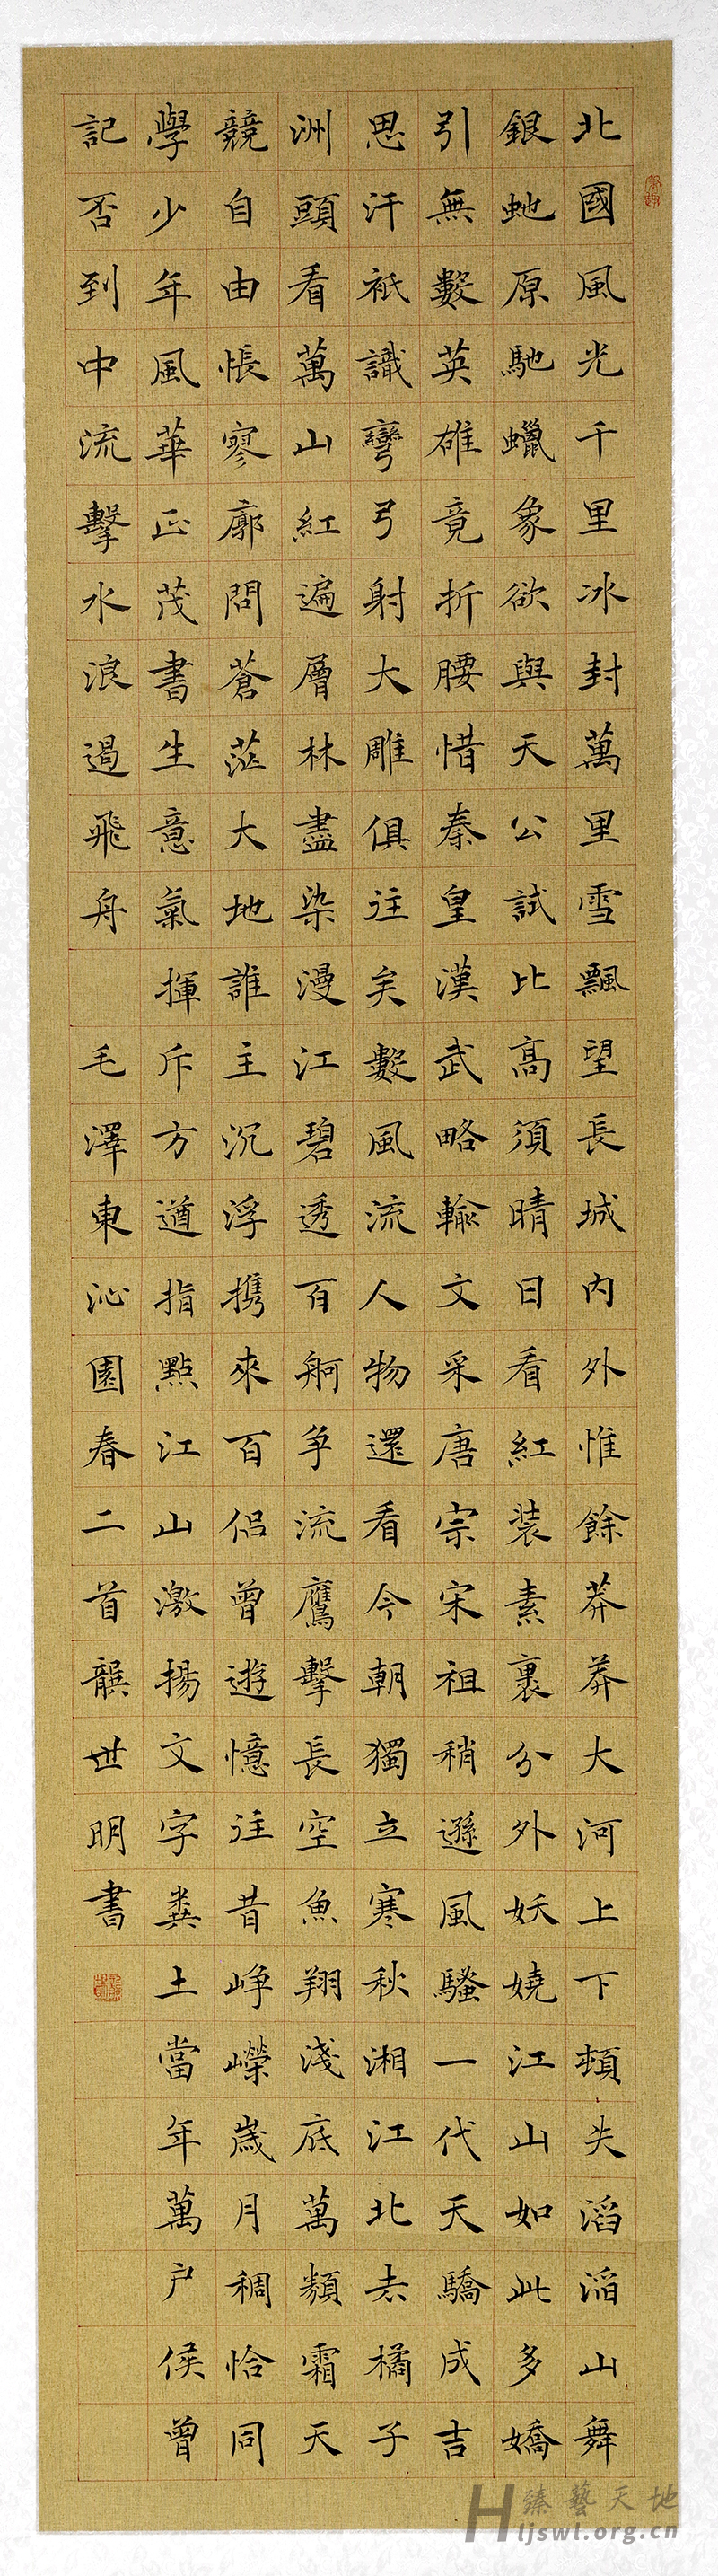 北國風光千里冰封萬里雪飄望長城内外惟餘莽莽大河上下頓失滔滔山舞
銀虵原馳蠟象欲與天公試比高須晴日看紅裝素裹分外妖嬈江山如此多嬌
引無數英雄竟折腰惜秦皇漢武略輸文采唐宗宋祖稍遜風騷一代天驕成吉
思汗衹識彎弓射大雕俱往矣數風流人物還看今朝獨立寒秋湘江北去橘子
洲頭看萬山紅遍層林盡染漫江碧透百舸争流鷹擊長空魚翔淺底萬類霜天
競自由悵寥廓問蒼茫大地誰主沉浮携來百侣曾遊憶往昔崢嶸歲月稠恰同
學少年風華正茂書生意氣揮斥方遒指點江山激揚文字糞土當年萬户侯曾
記否到中流擊水浪遏飛舟 毛澤東沁園春二首龔世明書
臻藝天地
Hljswl.org.cn